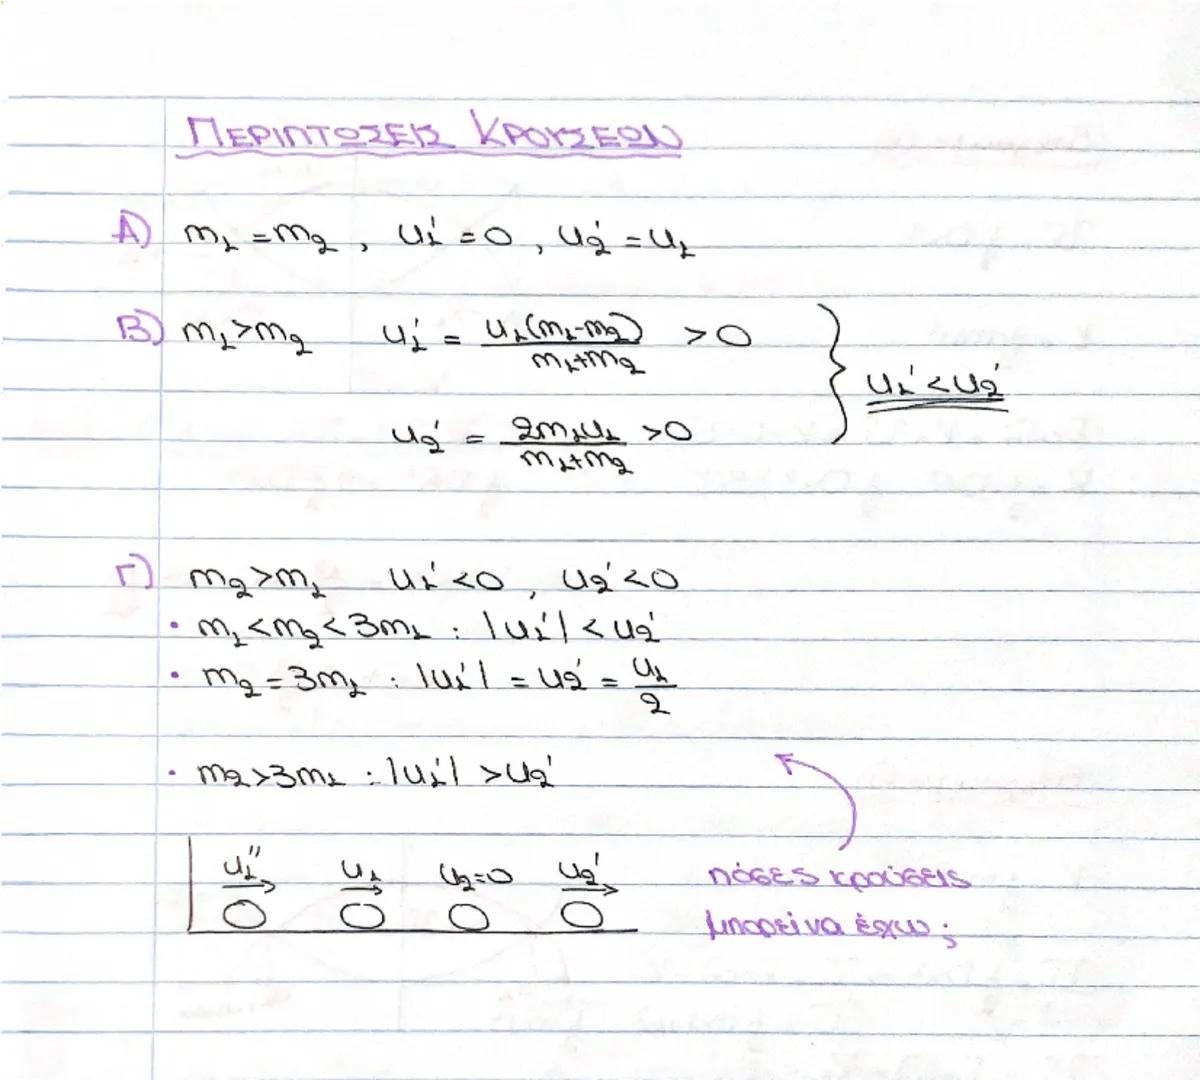 ΠΕΡΙΠΤΩΣΕΙΣ ΚΡΟΥΣΕΩΝ
Α) m₁ = m₂ , u₁' = 0 , u₂' = u₁
Β) m₁ > m₂ u₁' = u₁(m₁-m₂) / m₁+m₂ > 0
u₁' < u₂'
u₂' = 2m₁u₁ / m₁+m₂ > 0
Γ) m₂ > m₁ u₁' < 0 , u₂' < 0
• m₁ < m₂ < 3m₁ : |u₁'| < u₂'
• m₂ = 3m₁ : |u₁'| = u₂' = u₁ / 2
• m₂ > 3m₁ : |u₁'| > u₂'
u₁'' u₁ u₂=0 u₂'
πόσες κρούσεις
μπορεί να έχω ;